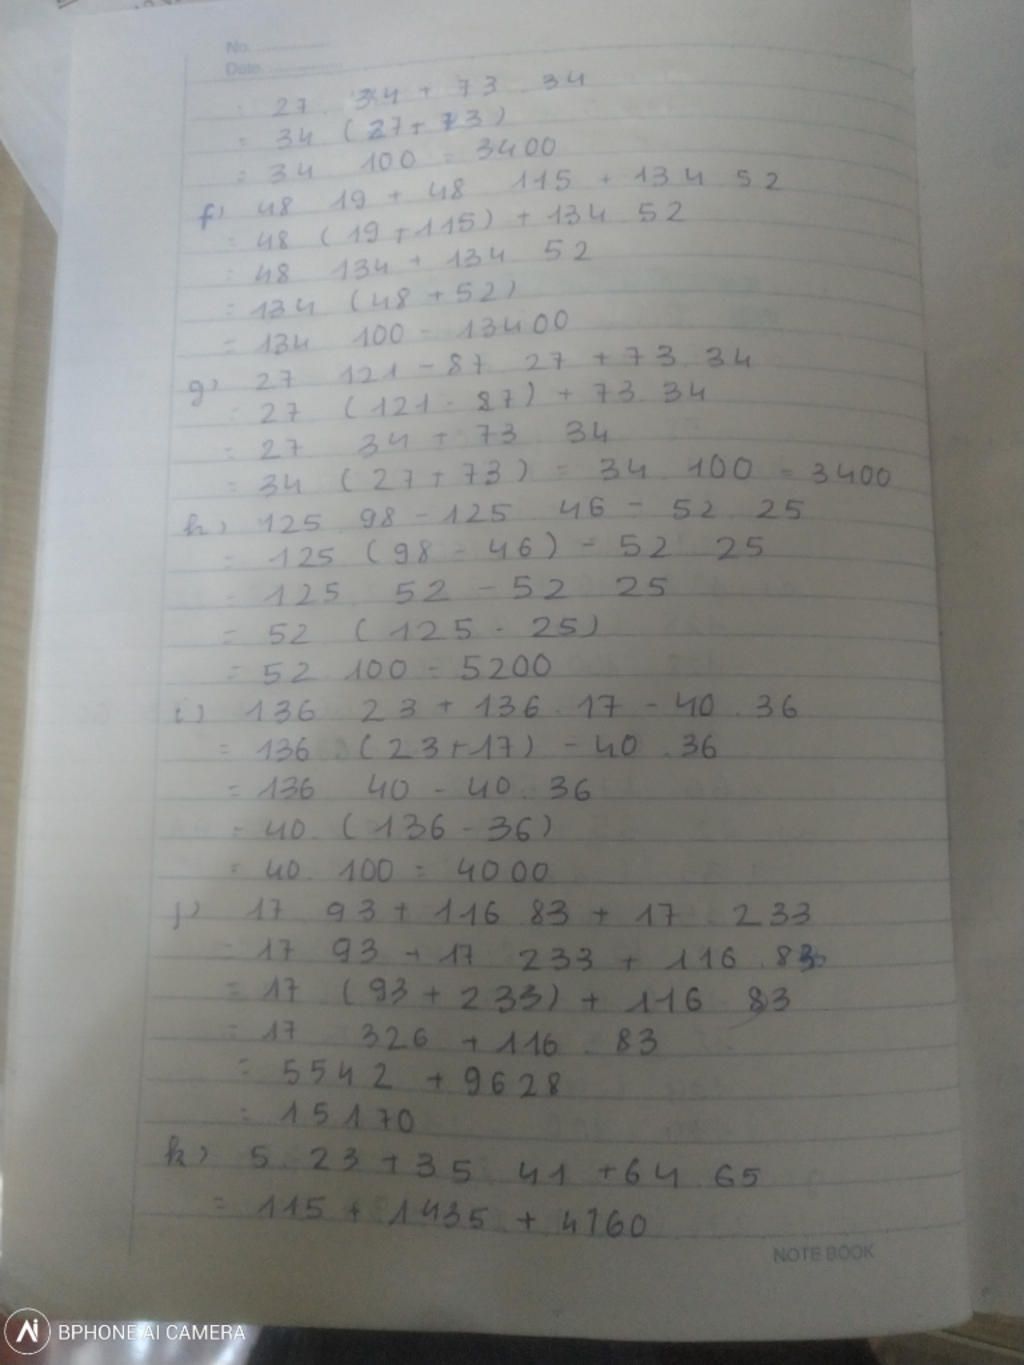 No. ..................
Date ..................
= 27 . 34 + 73 . 34
= 34 ( 27 + 73 )
= 34 100 = 3400
f) 48 19 + 48 115 + 134 52
= 48 ( 19 + 115 ) + 134 52
= 48 134 + 134 52
= 134 ( 48 + 52 )
= 134 100 = 13400
g) 27 121 - 87 27 + 73 . 34
= 27 ( 121 - 87 ) + 73 . 34
= 27 34 + 73 34
= 34 ( 27 + 73 ) = 34 . 100 = 3400
h) 125 . 98 - 125 46 - 52 . 25
= 125 ( 98 - 46 ) - 52 25
= 125 52 - 52 25
= 52 ( 125 - 25 )
= 52 100 = 5200
i) 136 23 + 136 . 17 - 40 . 36
= 136 . ( 23 + 17 ) - 40 . 36
= 136 40 - 40 . 36
= 40 . ( 136 - 36 )
= 40 . 100 = 4000
j) 17 93 + 116 83 + 17 . 233
= 17 93 + 17 233 + 116 . 83
= 17 ( 93 + 233 ) + 116 83
= 17 326 + 116 . 83
= 5542 + 9628
= 15170
k) 5 . 23 + 35 . 41 + 64 . 65
= 115 + 1435 + 4160
NOTE BOOK
Ai BPHONE AI CAMERA